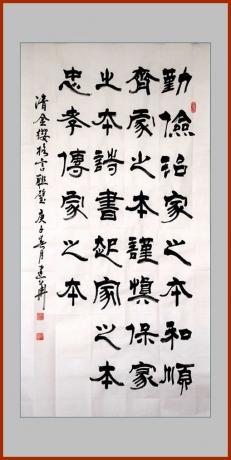 勤儉治家之本和順
齊家之本謹慎保家
之本詩書起家之本
忠孝傳家之本
清金纓格言聯璧庚子春月建華